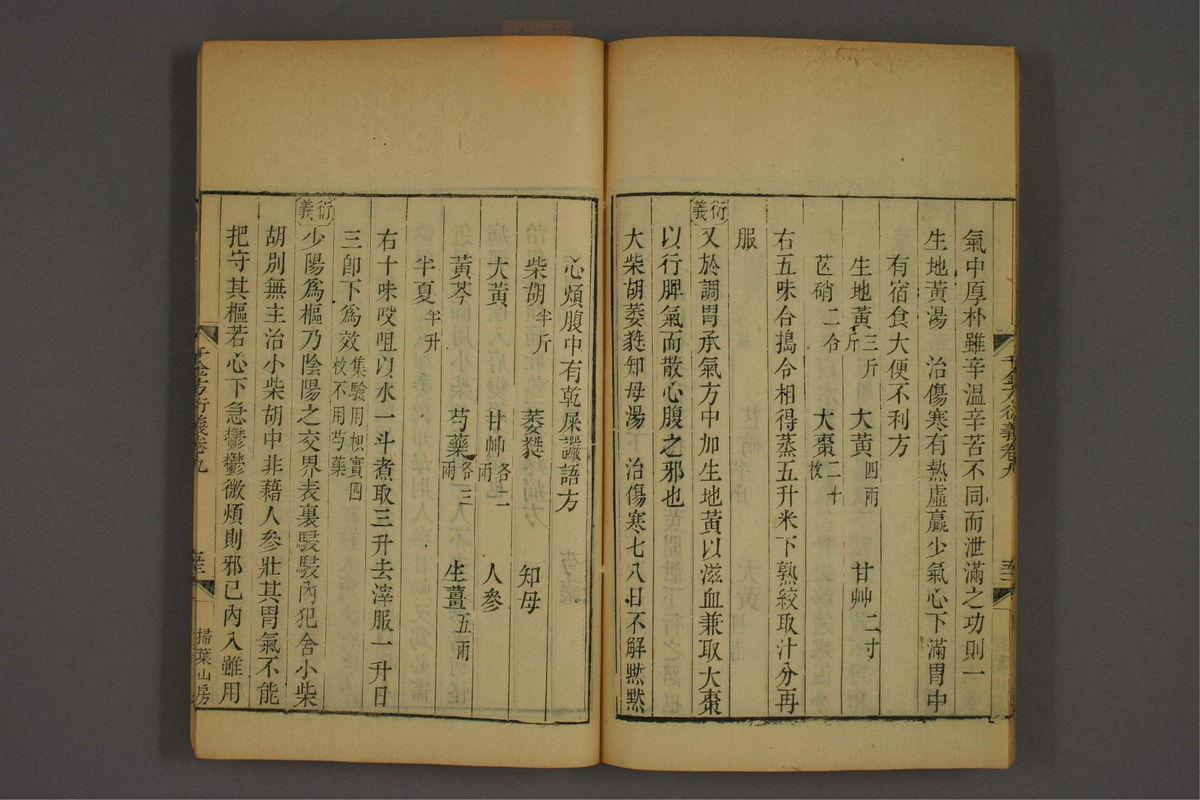 氣中厚朴雖辛溫辛苦不同而泄滿之功則一
生地黃湯　治傷寒有熱虛羸少氣心下滿胃中
有宿食大便不利方
生地黃三斤　大黃四兩　甘艸二寸
芒硝二合　大棗二十枚
右五味合搗令相得蒸五升米下熟絞取汁分再
服
衍義
又於調胃承氣方中加生地黃以滋血兼取大棗
以行脾氣而散心腹之邪也
大柴胡萎蕤知母湯　治傷寒七八日不解默默
心煩腹中有乾屎讝語方
柴胡半斤　萎蕤　知母
大黃　甘艸各二兩　人參
黃芩　芍藥各三兩　生薑五兩
半夏半升
右十味㕮咀以水一斗煮取三升去滓服一升日
三卽下爲效集驗用枳實四枚不用芍藥
衍義
少陽爲樞乃陰陽之交界表裏駸駸內犯舍小柴
胡別無主治小柴胡中非藉人參壯其胃氣不能
把守其樞若心下急鬱鬱微煩則邪已內入雖用
千金方衍義卷九
掃葉山房